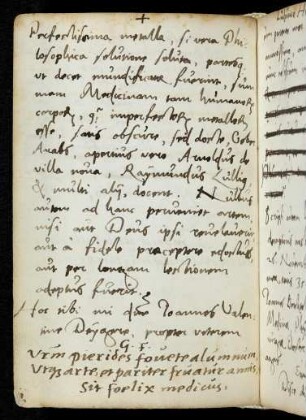 +
Perfectissima metalla, si vera Phi
losophica solutione soluta, parataq
ut decet mundificata fuerint, sum
mam Medicinam tam humanorũ
corporũ, q̃ imperfectorũ metallorũ
esse, satis obscure, sed docte, Geber
Arabs, apertius vero Arnoldus de
villa nova, Raymundus Lullius
& multi alij, docent. Nullus
autem ad hanc perveniet artem
nisi aut Deus ipsi revelaverit
aut à fideli praeceptore edoctus
aut per longam lectionem
adeptus fuerit.
hoc tibi mi Ioannes Valen
tine propter veterem
Vrm pierides fovete alumnum
Vtq3 arte, et pariter fruatur annis,
Sit foelix medicus.